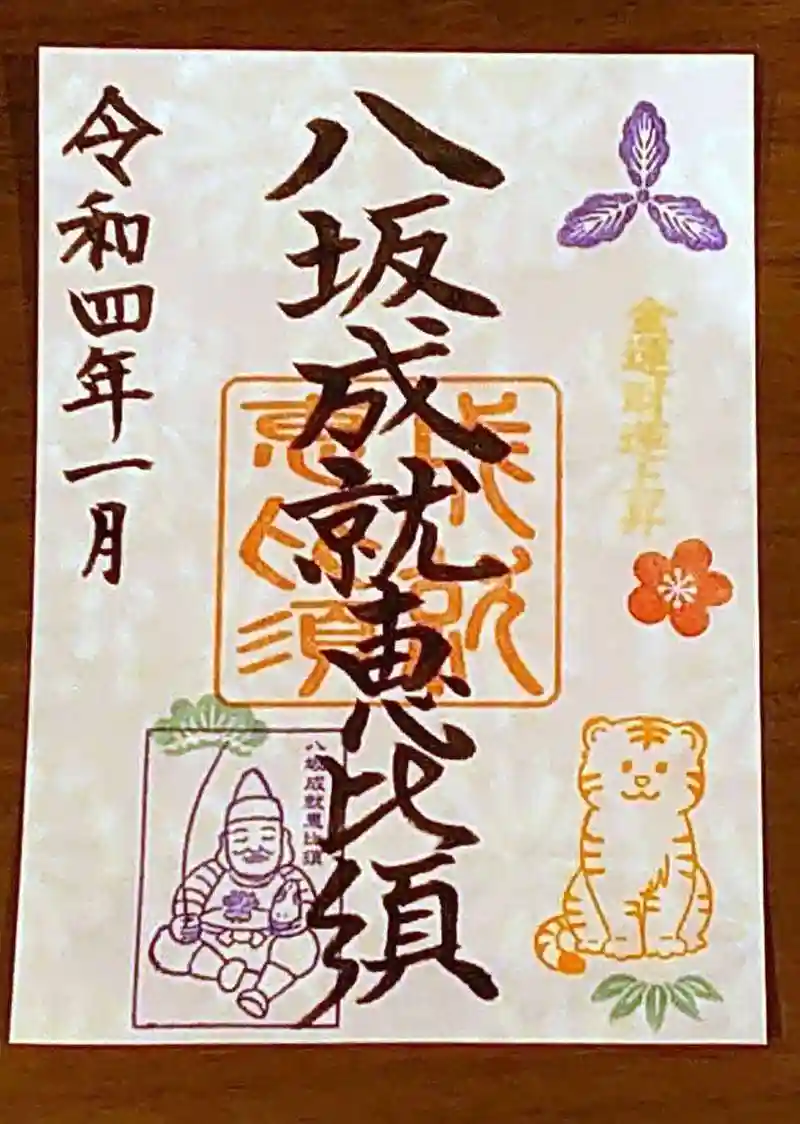 金運財運上昇
八坂成就恵比須
成就
恵比須
八坂成就恵比須
令和四年一月